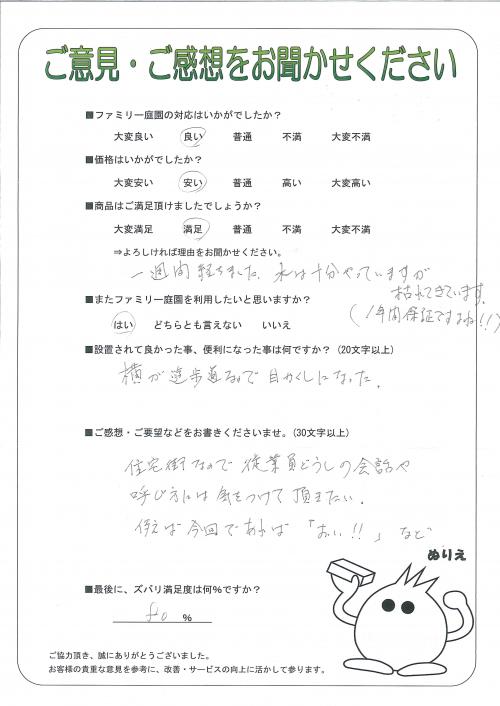 ご意見・ご感想をお聞かせください
■ファミリー庭園の対応はいかがでしたか？
大変良い 良い 普通 不満 大変不満
■価格はいかがでしたか？
大変安い 安い 普通 高い 大変高い
■商品はご満足頂けましたでしょうか？
大変満足 満足 普通 不満 大変不満
⇒よろしければ理由をお聞かせください。
一週間経ちました。水は十分やっていますが
枯れてきています。
(1年間保証ですよね!!)
■またファミリー庭園を利用したいと思いますか？
はい どちらとも言えない いいえ
■設置されて良かった事、便利になった事は何ですか？（20文字以上）
横が遊歩道なので目かくしになった。
■ご感想・ご要望などをお書きくださいませ。（30文字以上）
住宅街なので従業員どうしの会話や
呼び方には気をつけて頂きたい。
例えば今回であれば「おい!!」など
ぬりえ
■最後に、ズバリ満足度は何％ですか？
80 ％
ご協力頂き、誠にありがとうございました。
お客様の貴重な意見を参考に、改善・サービスの向上に活かして参ります。